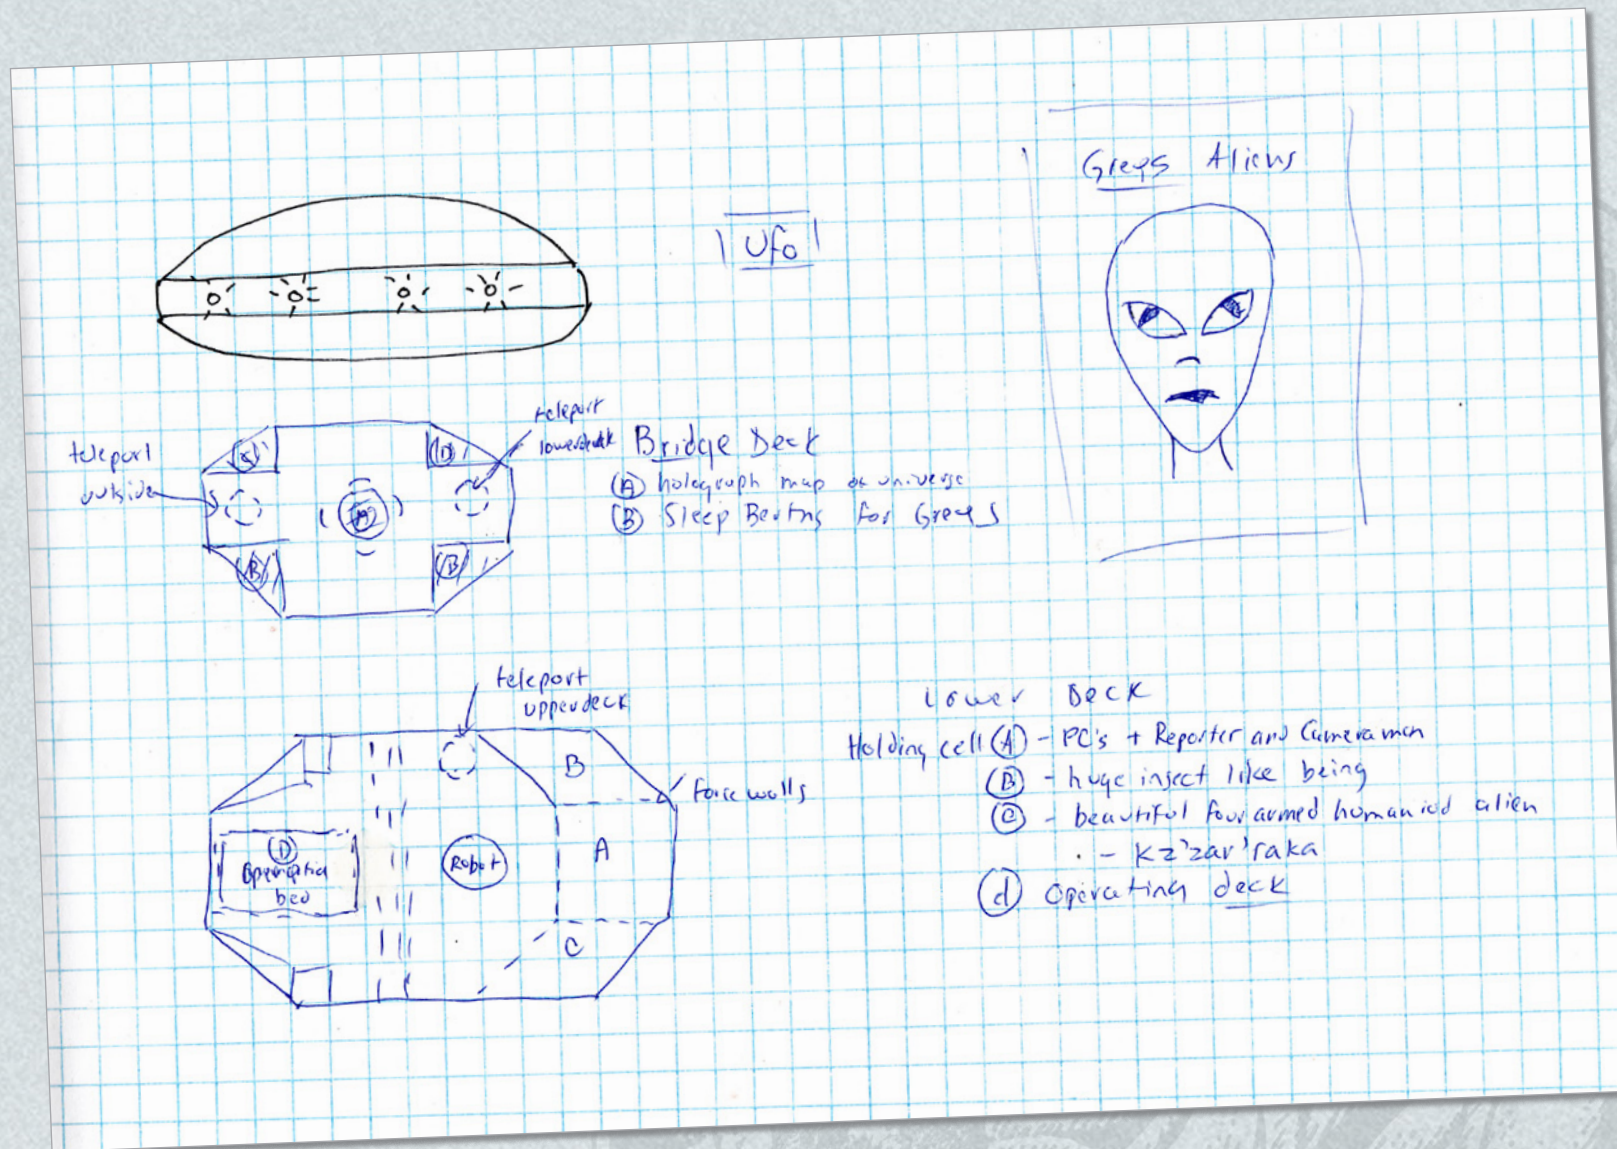 Greys Aliens
Ufo
teleport
outside
teleport
lowerdeck
Bridge Deck
(A) holograph map of universe
(B) Sleep Berths for Greys
A
B
B
teleport
upperdeck
Force walls
B
A
C
Robot
(D)
bed
Lower Deck
Holding cell (A) - PC's + Reporter and Cameraman
(B) - huge insect like being
(C) - beautiful four armed humaniod alien
- Kz'zar'raka
(d) Operating deck